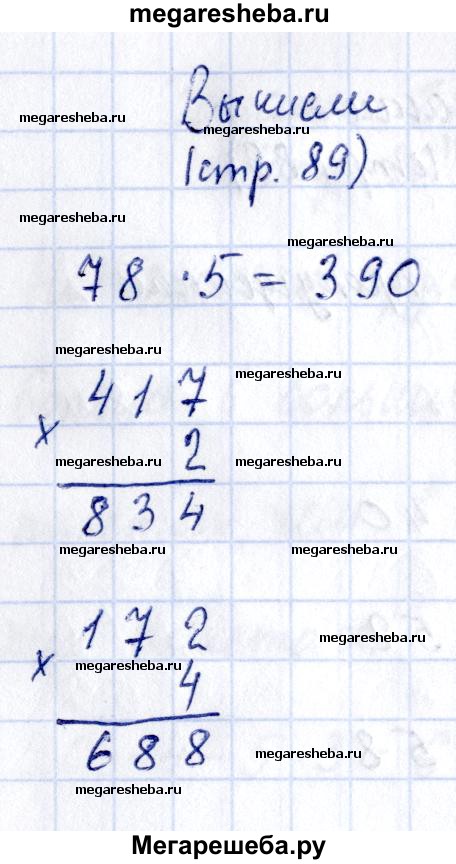 megaresheba.ru
Вычисли
megaresheba.ru
megaresheba.ru
(стр. 89)
megaresheba.ru
megaresheba.ru
78 · 5 = 390
megaresheba.ru
megaresheba.ru
417
×
2
megaresheba.ru
megaresheba.ru
834
megaresheba.ru
megaresheba.ru
172
megaresheba.ru
×
megaresheba.ru
4
688
megaresheba.ru
megaresheba.ru
Мегарешеба.ру